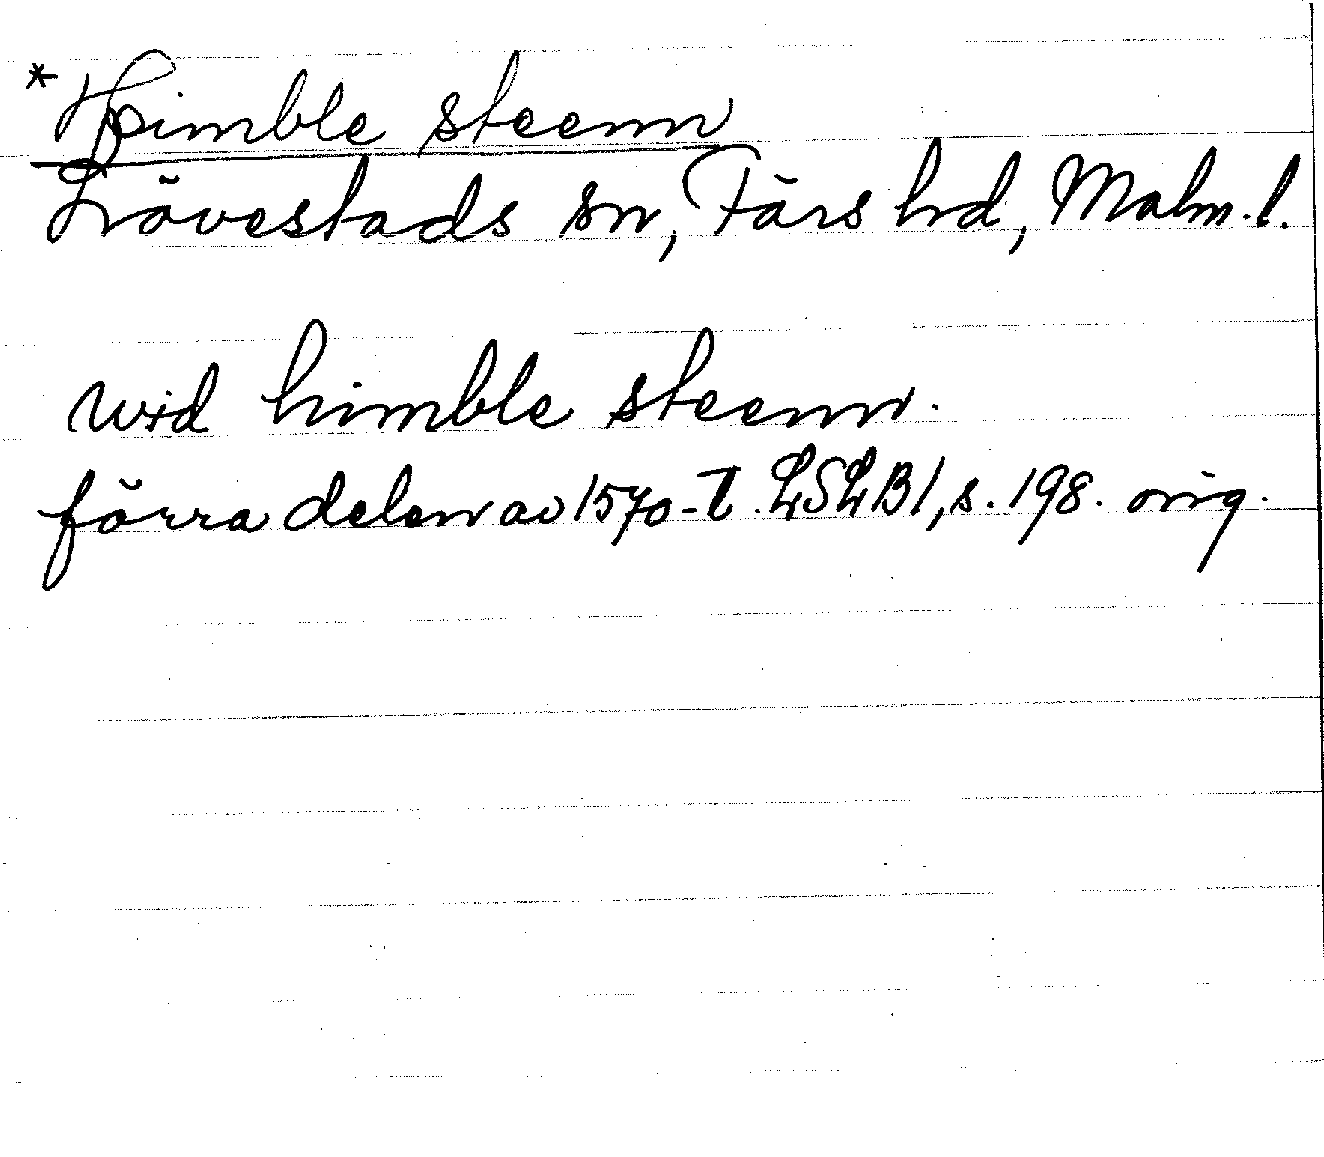 *Himble steenn
Lövestads sn, Färs hd, Malm.l.
wid himble steenn.
förra delen av 1570-t. LSLB1, s. 198. orig.